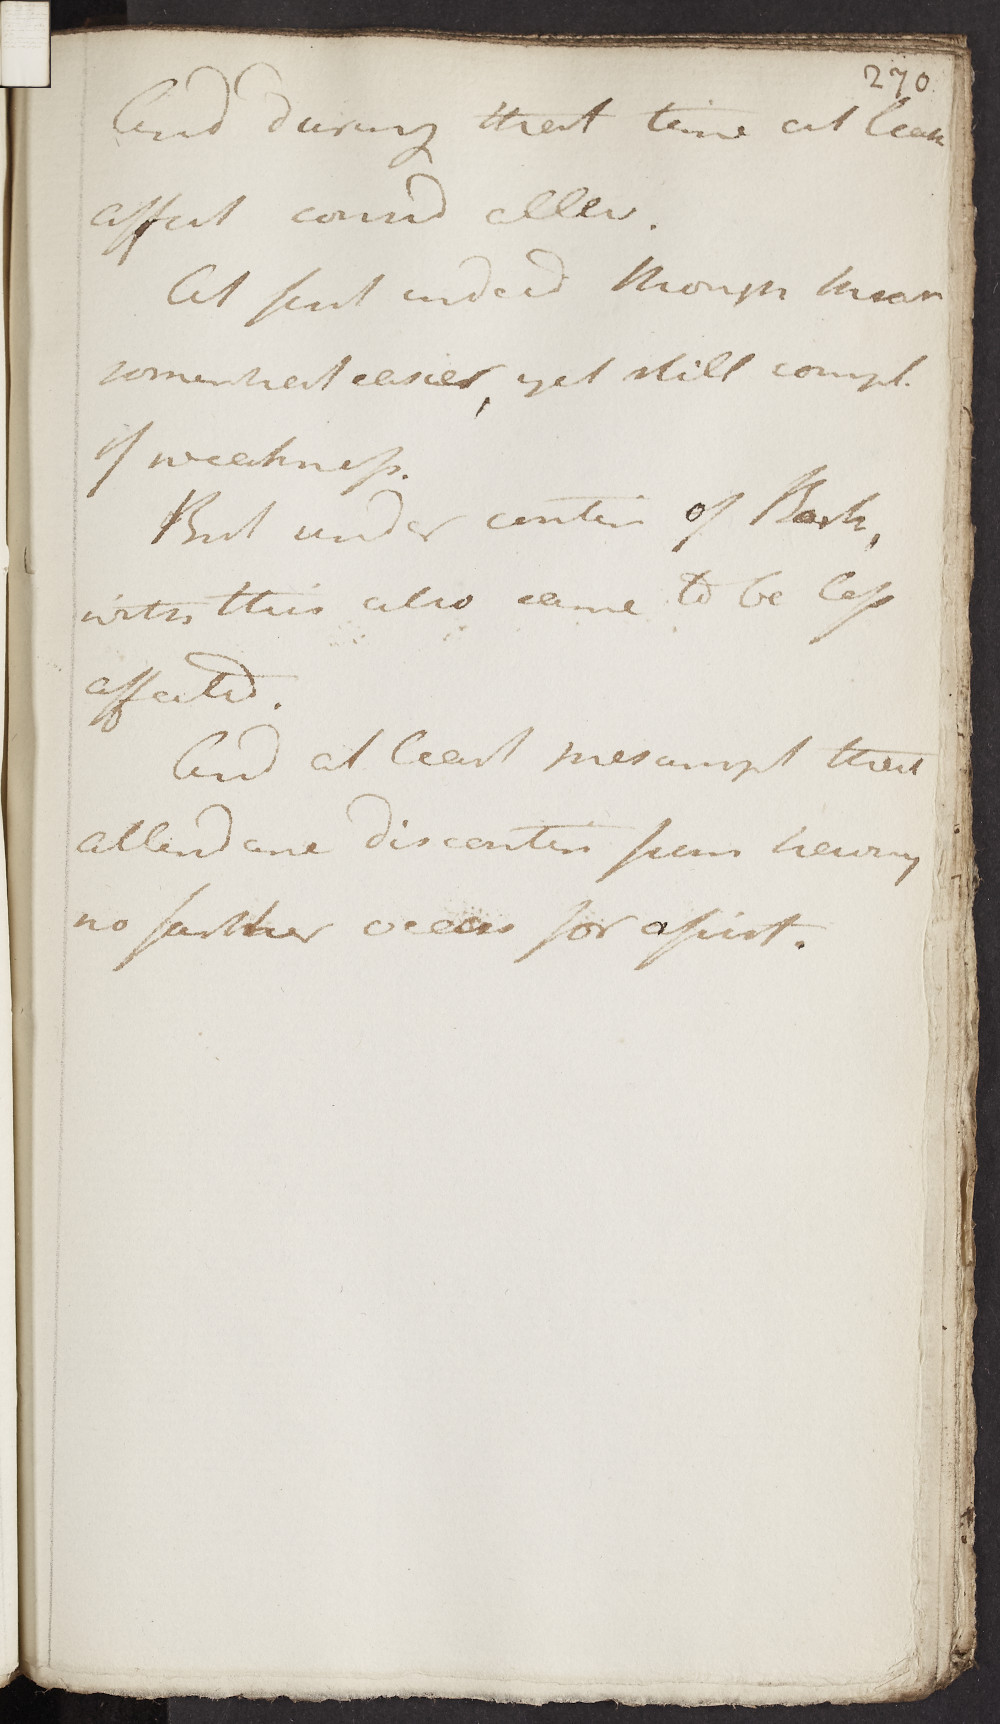 270
And during that time at least
affect consid allev.
At first indeed though
somewhat easier, yet still compl.
of weakness.
But under contin of Bark,
with this also came to be less
affected.
And at least presumpt that
attendance discontin from having
no farther occas for assist.